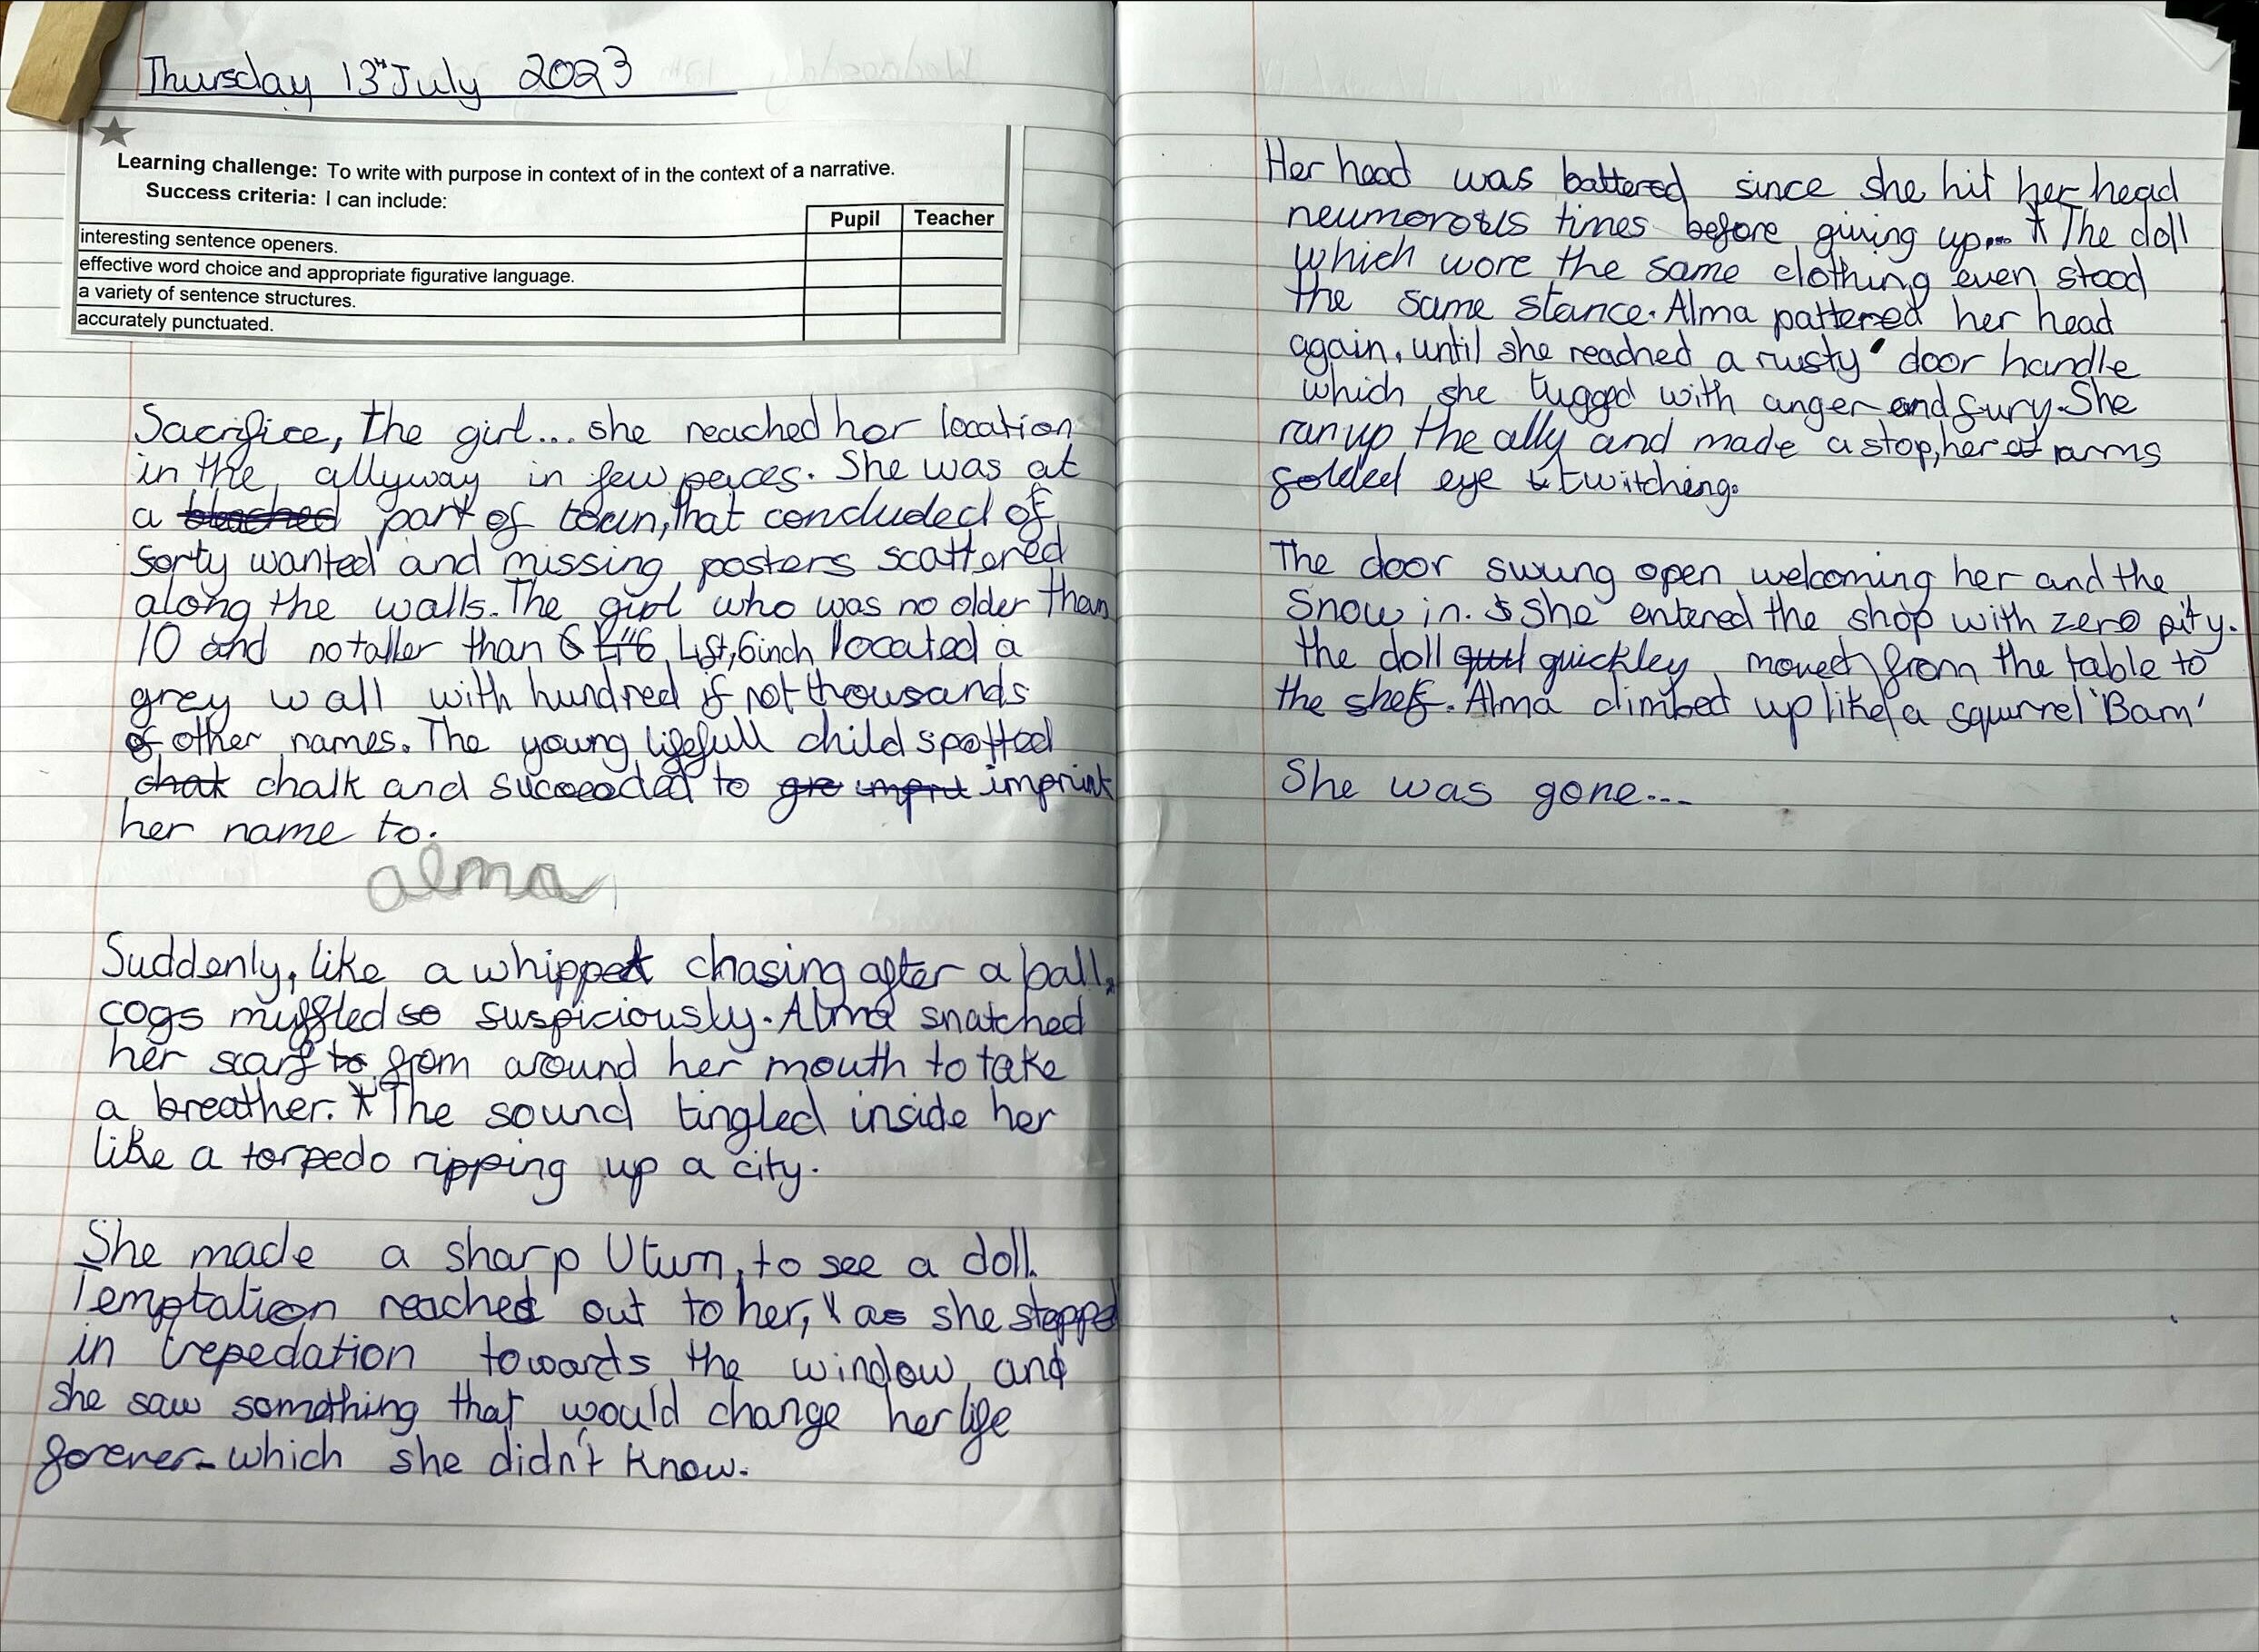 Thursday 13th July 2023
Learning challenge: To write with purpose in context of in the context of a narrative.
Success criteria: I can include:
Pupil Teacher
interesting sentence openers.
effective word choice and appropriate figurative language.
a variety of sentence structures.
accurately punctuated.
Sacrifice, the girl... she reached her location
in the allyway in few paces. She was at
a bleached part of town, that concluded of
sorty wanted and missing posters scattered
along the walls. The girl who was no older than
10 and no taller than 6 4'6 4ft, 6inch located a
grey wall with hundred if not thousands
of other names. The young lifefull child spotted
chak chalk and succeeded to gre imprt imprint
her name to.
alma
Suddenly, like a whippet chasing after a ball,
cogs muffled so suspiciously. Alma snatched
her scarf to from around her mouth to take
a breather. * The sound tingled inside her
like a torpedo ripping up a city.
She made a sharp Uturn, to see a doll.
Temptation reached out to her, as she stepped
in trepedation towards the window and
she saw something that would change her life
forever - which she didn't know.
Her head was battered since she hit her head
neumorous times before giving up... * The doll
which wore the same clothing even stood
the same stance. Alma pattered her head
again, until she reached a rusty door handle
which she tugged with anger and fury. She
ran up the ally and made a stop, her arms
folded eye twitching.
The door swung open welcoming her and the
snow in. She entered the shop with zero pity.
the doll quickley moved from the table to
the shelf. Alma climbed up like a squirrel 'Bam'
She was gone...